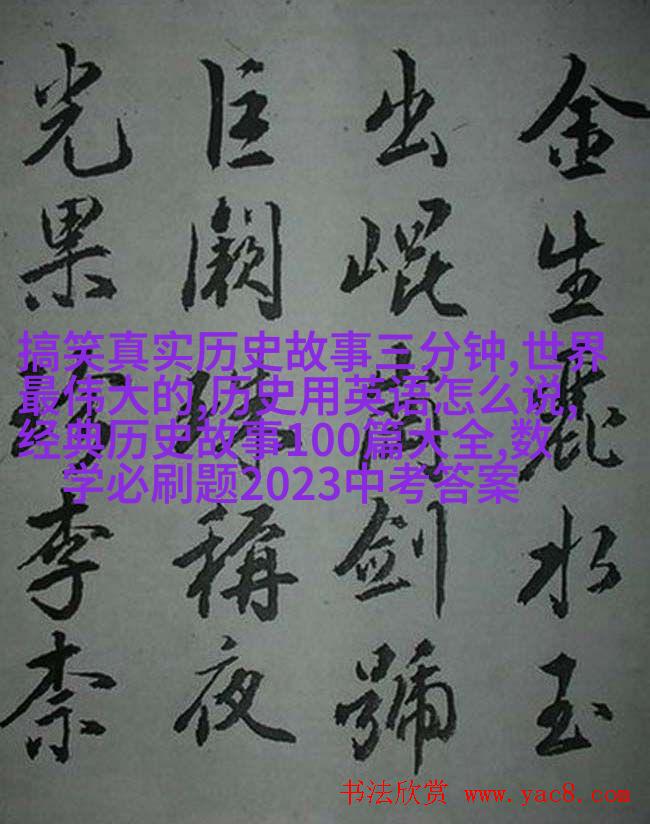 金生麗水玉
出崐岡劍號
巨闕珠稱夜
光果珍李柰
搞笑真实历史故事三分钟,世界
最伟大的,历史用英语怎么说,
经典历史故事100篇大全,数
学必刷题2023中考答案
书法欣赏 www.yac8.com